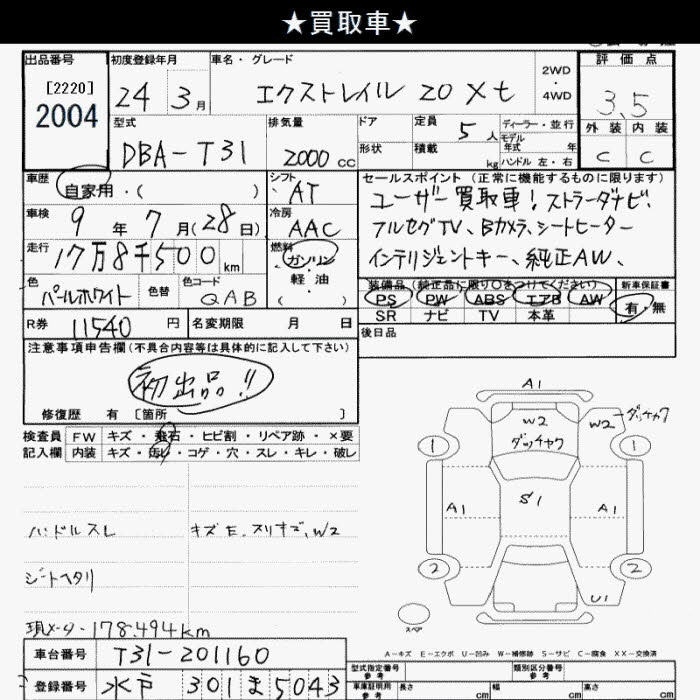 ★買取車★
出品番号
[2220]
2004
初度登録年月
24 3月
車名・グレード
エクストレイル 20 Xt
2WD
・
4WD
評価点
3.5
型式
DBA-T31
排気量
2000 cc
ドア
形状
定員 5人
積載 kg
ディーラー・並行
モデル
年式 年
ハンドル 左・右
外装 内装
C C
車歴
自家用・( )
シフト
AT
セールスポイント (正常に機能するものに限ります)
ユーザー買取車!ストラーダナビ、
フルセグTV、Bカメラ、シートヒーター
インテリジェントキー、純正AW、
車検
9年7月(28日)
冷房
AAC
走行
17万8千500km
燃料
ガソリン
・
軽油
( )
色
パールホワイト
色替
色コード
QAB
装備品 (純正品に限り○をつけてください)
PS PW ABS エアB AW
SR ナビ TV 本革
新車保証書
有・無
R券 11540円
名変期限 月 日
後日品
注意事項申告欄(不具合内容等は具体的に記入して下さい)
初出品!!
修復歴 有 [箇所 ]
検査員 FW キズ・飛石・ヒビ割・リペア跡・×要
記入欄 内装 キズ・汚レ・コゲ・穴・スレ・キレ・破レ
ハンドルスレ
キズE.スリキズ、W2
シートヘタリ
現メーター178.494km
A1
W2
ダッチャク
W2
ダッチャク
1
1
A1
S1
A1
2
2
U1
スペア
A-キズ E-エクボ U-凹み W-補修跡 S-サビ C-腐食 XX-交換済
車台番号 T31-201160
登録番号 水戸 301 ま 5043
型式指定番号
参考
類別区分番号
参考
車庫証明用
参考
長さ cm
幅 cm
高さ cm